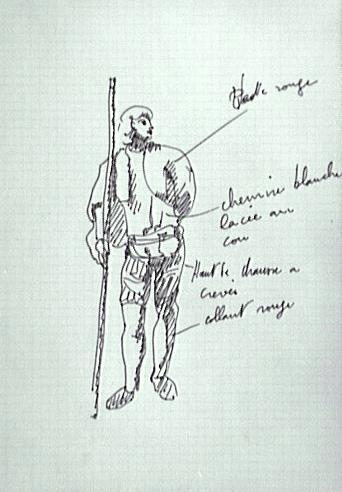 rouge
chemise blanche
lacée au
cou
Haut de chausse a
crevés
collant rouge